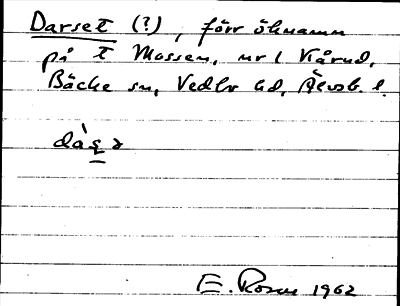 Darset (?), förr öknamn
på t Mossen, nr 1 Kårud,
Bäcke sn, Vedbo hd, Älvsb. l.
E. Rosen 1962